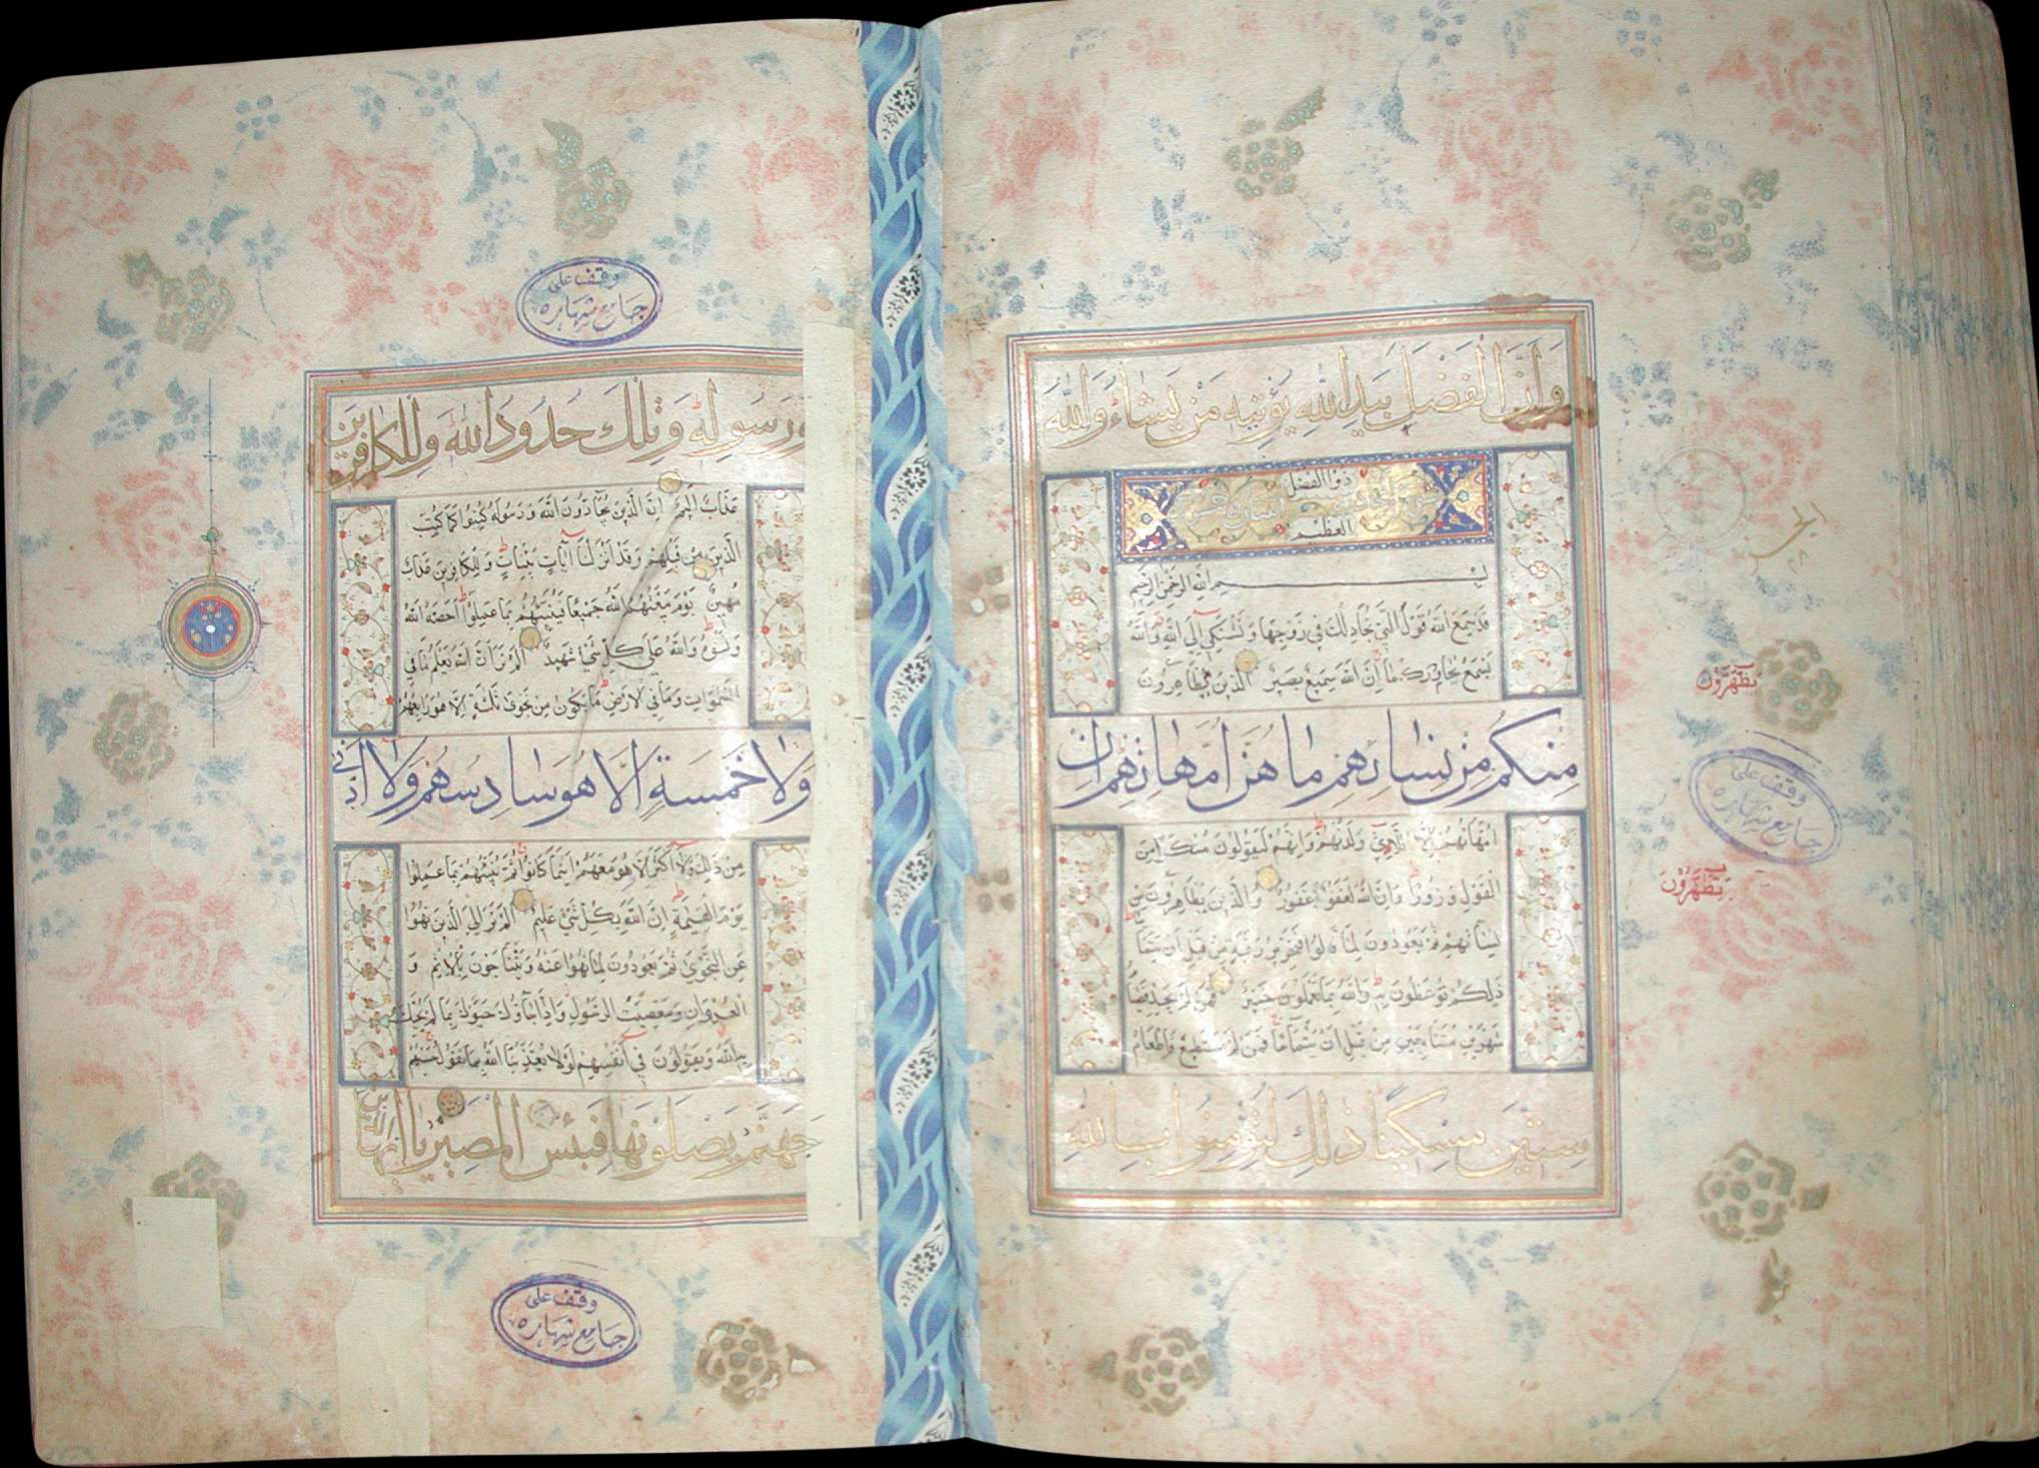 وَأَنَّ الْفَضْلَ بِيَدِ اللَّهِ يُؤْتِيهِ مَنْ يَشَاءُ وَاللَّهُ
ذُو الْفَضْلِ
الْعَظِيمِ
بِسْمِ اللَّهِ الرَّحْمَنِ الرَّحِيمِ
قَدْ سَمِعَ اللَّهُ قَوْلَ الَّتِي تُجَادِلُكَ فِي زَوْجِهَا وَتَشْتَكِي إِلَى اللَّهِ وَاللَّهُ
يَسْمَعُ تَحَاوُرَكُمَا إِنَّ اللَّهَ سَمِيعٌ بَصِيرٌ الَّذِينَ يُظَاهِرُونَ
مِنْكُمْ مِنْ نِسَائِهِمْ مَا هُنَّ أُمَّهَاتِهِمْ إِنْ
أُمَّهَاتُهُمْ إِلَّا اللَّائِي وَلَدْنَهُمْ وَإِنَّهُمْ لَيَقُولُونَ مُنْكَرًا مِنَ
الْقَوْلِ وَزُورًا وَإِنَّ اللَّهَ لَعَفُوٌّ غَفُورٌ وَالَّذِينَ يُظَاهِرُونَ مِنْ
نِسَائِهِمْ ثُمَّ يَعُودُونَ لِمَا قَالُوا فَتَحْرِيرُ رَقَبَةٍ مِنْ قَبْلِ أَنْ يَتَمَاسَّا
ذَلِكُمْ تُوعَظُونَ بِهِ وَاللَّهُ بِمَا تَعْمَلُونَ خَبِيرٌ فَمَنْ لَمْ يَجِدْ فَصِيَامُ
شَهْرَيْنِ مُتَتَابِعَيْنِ مِنْ قَبْلِ أَنْ يَتَمَاسَّا فَمَنْ لَمْ يَسْتَطِعْ فَإِطْعَامُ
سِتِّينَ مِسْكِينًا ذَلِكَ لِتُؤْمِنُوا بِاللَّهِ
يَظَّهَّرُونَ
وقف على
جامع شهاره
يَظَّهَّرُونَ
وقف على
جامع شهاره
وَرَسُولِهِ وَتِلْكَ حُدُودُ اللَّهِ وَلِلْكَافِرِينَ
عَذَابٌ أَلِيمٌ إِنَّ الَّذِينَ يُحَادُّونَ اللَّهَ وَرَسُولَهُ كُبِتُوا كَمَا كُبِتَ
الَّذِينَ مِنْ قَبْلِهِمْ وَقَدْ أَنْزَلْنَا آيَاتٍ بَيِّنَاتٍ وَلِلْكَافِرِينَ عَذَابٌ
مُهِينٌ يَوْمَ يَبْعَثُهُمُ اللَّهُ جَمِيعًا فَيُنَبِّئُهُمْ بِمَا عَمِلُوا أَحْصَاهُ اللَّهُ
وَنَسُوهُ وَاللَّهُ عَلَى كُلِّ شَيْءٍ شَهِيدٌ أَلَمْ تَرَ أَنَّ اللَّهَ يَعْلَمُ مَا فِي
السَّمَوَاتِ وَمَا فِي الْأَرْضِ مَا يَكُونُ مِنْ نَجْوَى ثَلَاثَةٍ إِلَّا هُوَ رَابِعُهُمْ
وَلَا خَمْسَةٍ إِلَّا هُوَ سَادِسُهُمْ وَلَا أَدْنَى
مِنْ ذَلِكَ وَلَا أَكْثَرَ إِلَّا هُوَ مَعَهُمْ أَيْنَمَا كَانُوا ثُمَّ يُنَبِّئُهُمْ بِمَا عَمِلُوا
يَوْمَ الْقِيَمَةِ إِنَّ اللَّهَ بِكُلِّ شَيْءٍ عَلِيمٌ أَلَمْ تَرَ إِلَى الَّذِينَ نُهُوا
عَنِ النَّجْوَى ثُمَّ يَعُودُونَ لِمَا نُهُوا عَنْهُ وَيَتَنَاجَوْنَ بِالْإِثْمِ وَ
الْعُدْوَانِ وَمَعْصِيَتِ الرَّسُولِ وَإِذَا جَاؤُكَ حَيَّوْكَ بِمَا لَمْ يُحَيِّكَ
بِهِ اللَّهُ وَيَقُولُونَ فِي أَنْفُسِهِمْ لَوْلَا يُعَذِّبُنَا اللَّهُ بِمَا نَقُولُ حَسْبُهُمْ
جَهَنَّمُ يَصْلَوْنَهَا فَبِئْسَ الْمَصِيرُ يَا أَيُّهَا الَّذِينَ
وقف على
جامع شهاره